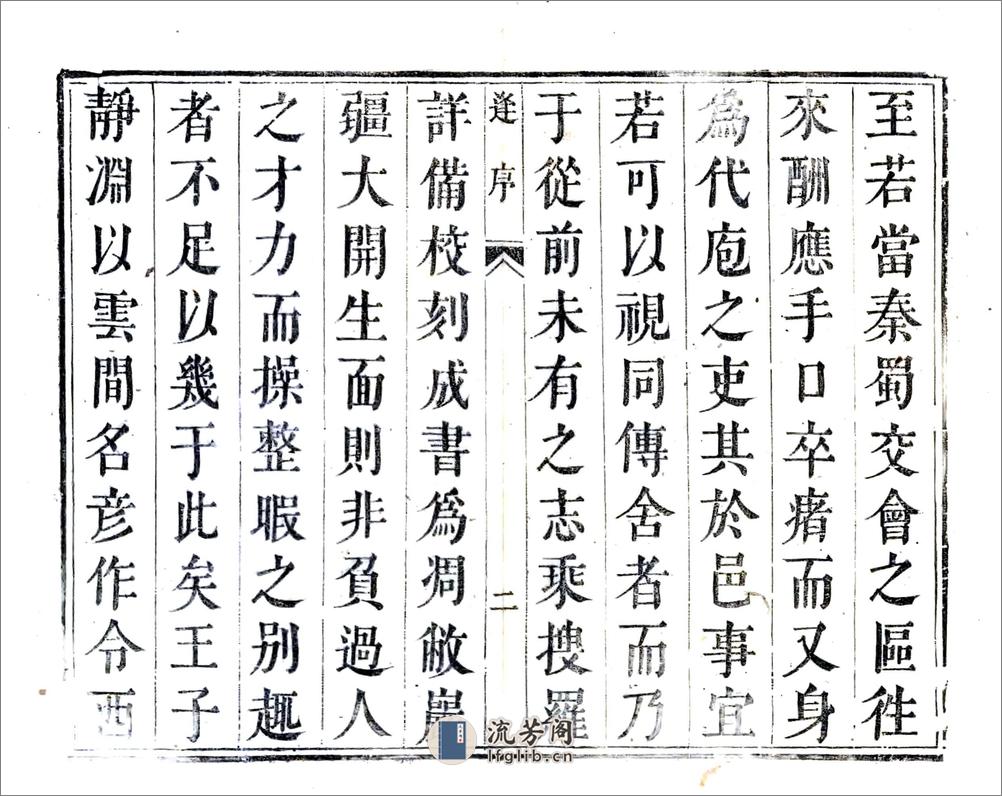 至若當秦蜀交會之區徃
來酬應手口卒瘏而又身
為代庖之吏其於邑事宜
若可以視同傳舍者而乃
于從前未有之志乘搜羅
逢序 二
詳備校刻成書爲凋敝嚴
疆大開生面則非負過人
之才力而操整暇之别趣
者不足以幾于此矣王子
靜淵以雲間名彦作令西
流芳阁
lfglib.cn